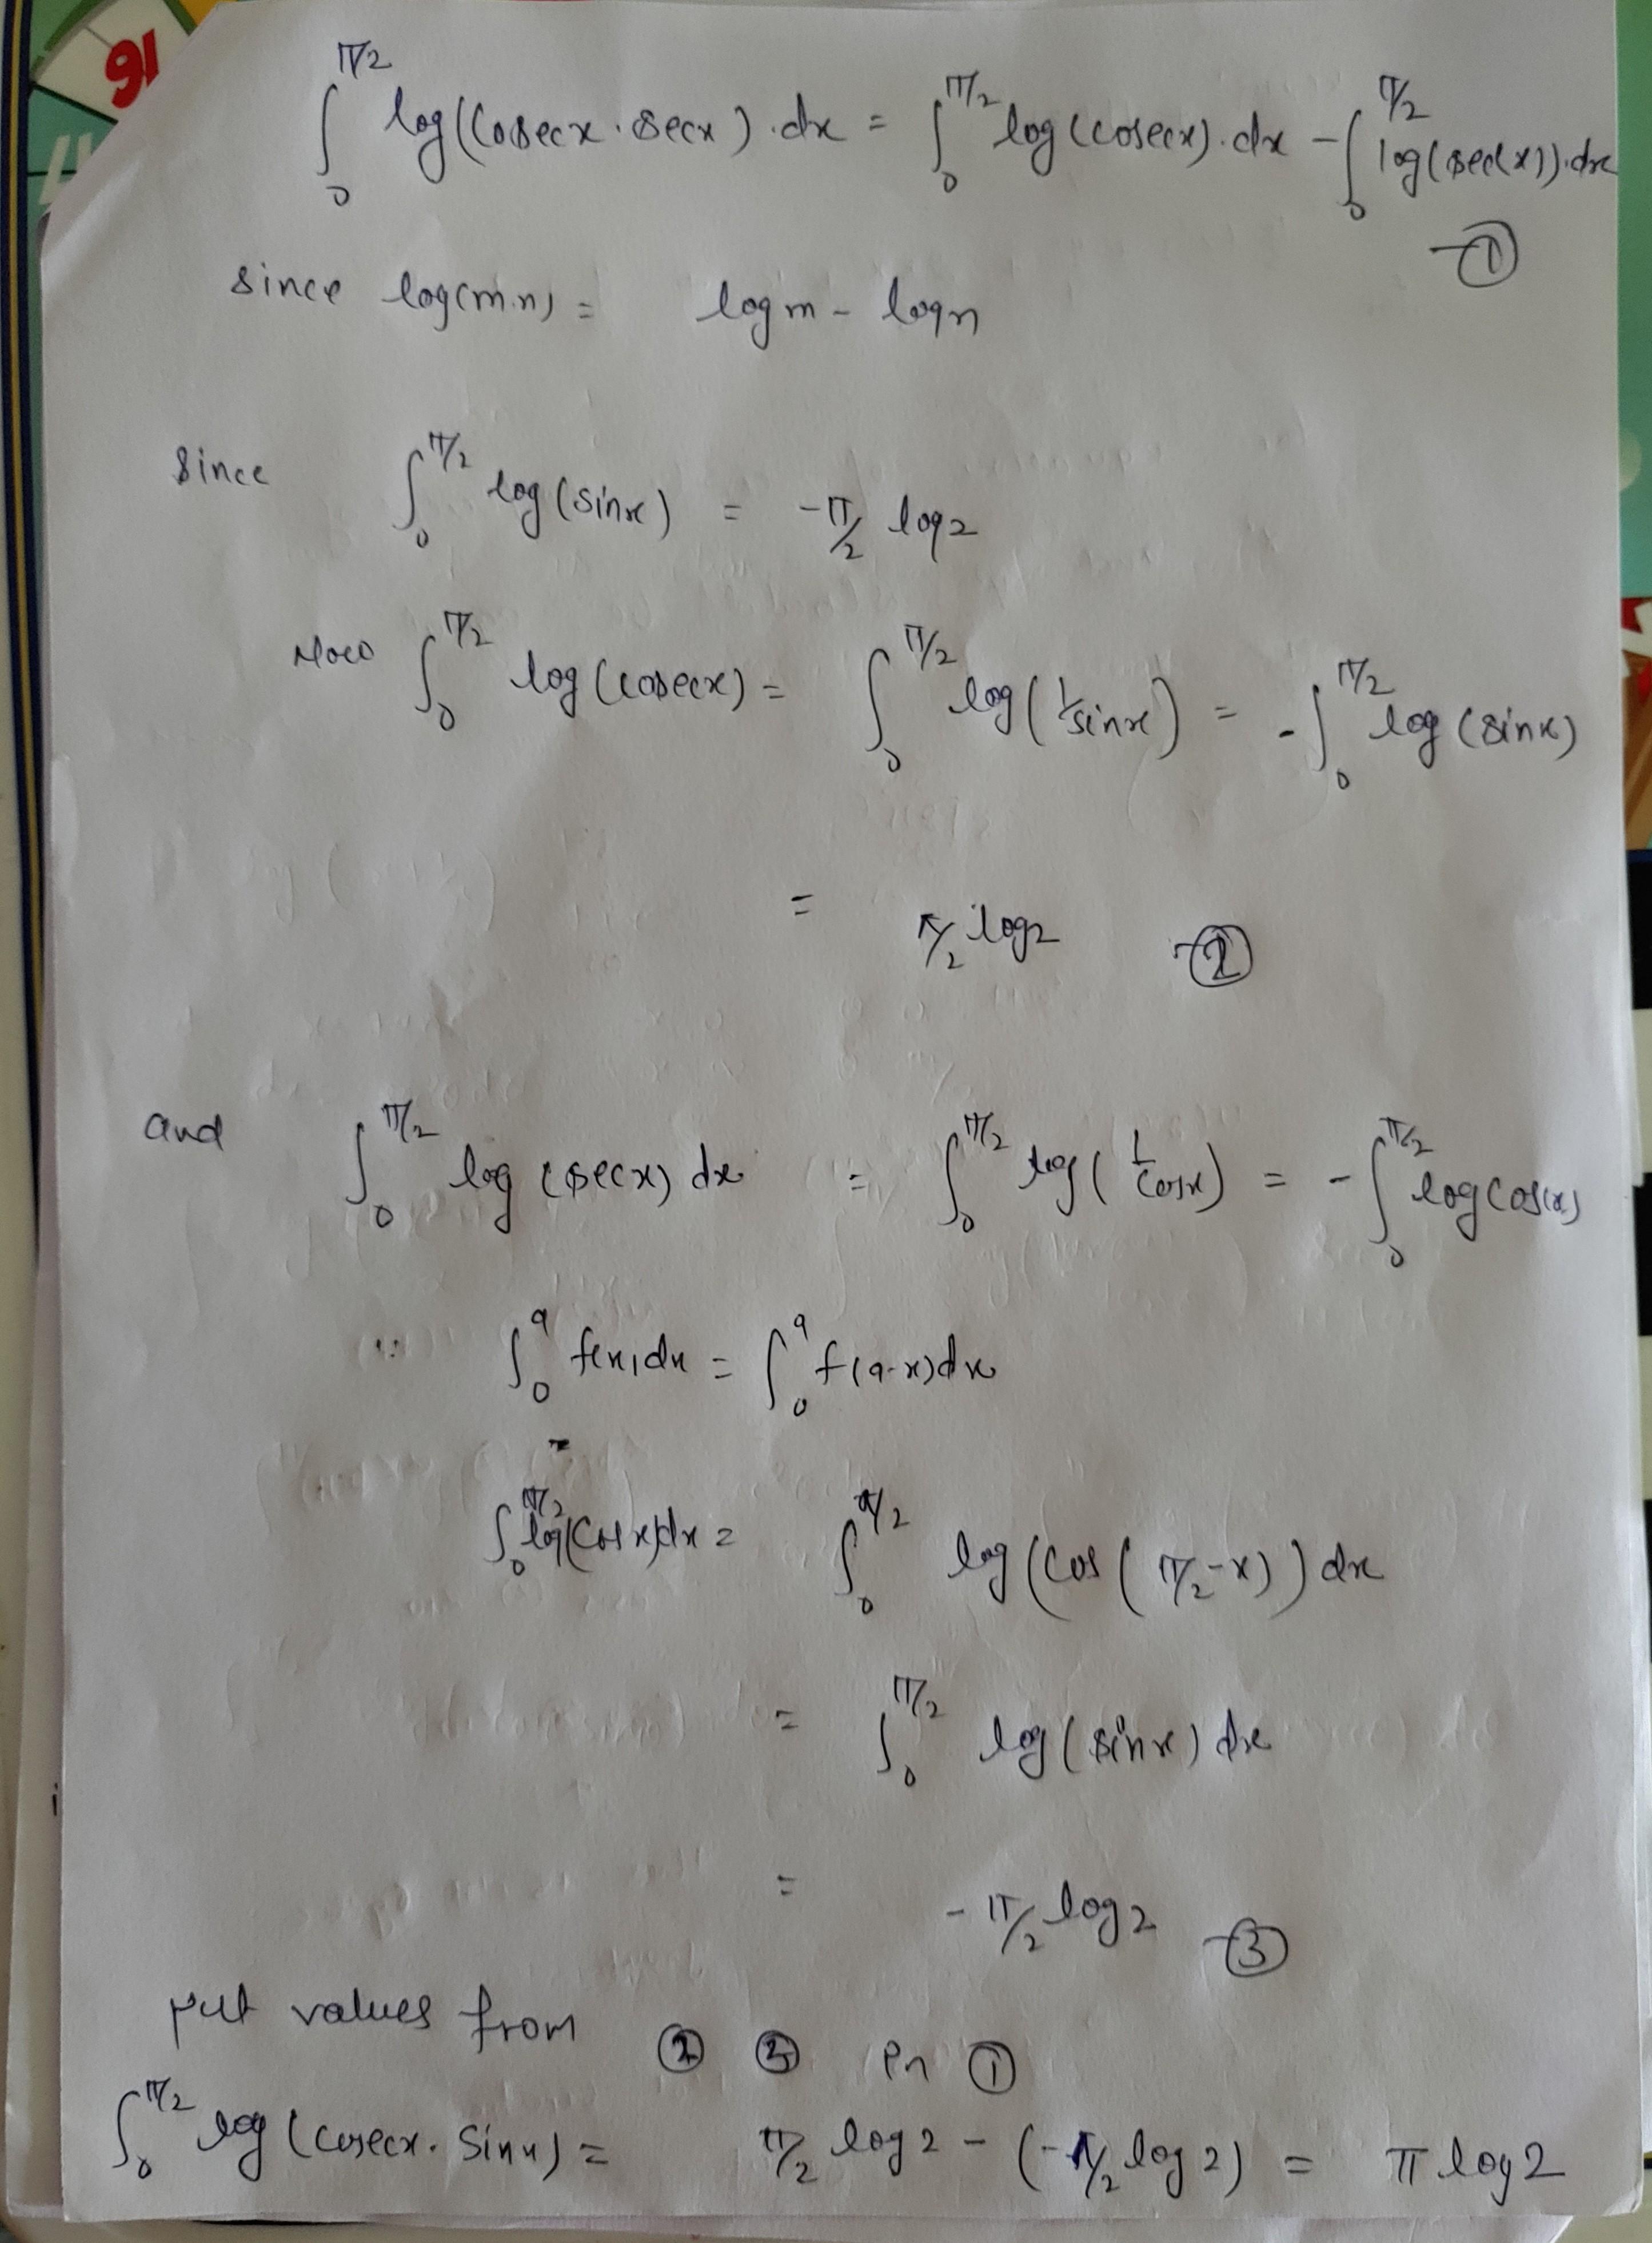 16
∫₀^π/2 log(Cosecx · secx) · dx = ∫₀^π/2 log(cosecx) · dx - ∫₀^π/2 log(sec(x)) · dx
-①
since log(m.n) = logm - logn
Since ∫₀^π/2 log(sinx) = -π/2 log2
Now ∫₀^π/2 log(cosecx) = ∫₀^π/2 log(1/sinx) = -∫₀^π/2 log(sinx)
= π/2 log2 -②
and ∫₀^π/2 log(secx) dx = ∫₀^π/2 log(1/cosx) = -∫₀^π/2 log cos(x)
∵ ∫₀^a f(x)dx = ∫₀^a f(a-x)dx
∫₀^π/2 log(Cosx)dx = ∫₀^π/2 log(Cos(π/2-x))dx
= ∫₀^π/2 log(sinx)dx
= -π/2 log2 -③
put values from ② ③ in ①
∫₀^π/2 log(cosecx. Sinx) = π/2 log2 - (-π/2 log2) = π log2